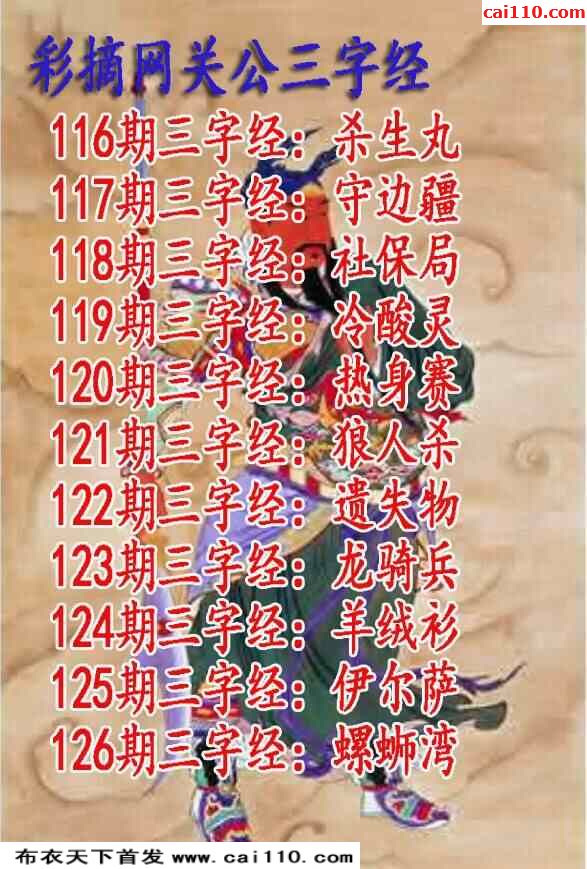 cai110.com
彩摘网关公三字经
116期三字经：杀生丸
117期三字经：守边疆
118期三字经：社保局
119期三字经：冷酸灵
120期三字经：热身赛
121期三字经：狼人杀
122期三字经：遗失物
123期三字经：龙骑兵
124期三字经：羊绒衫
125期三字经：伊尔萨
126期三字经：螺蛳湾
布衣天下首发 www.cai110.com